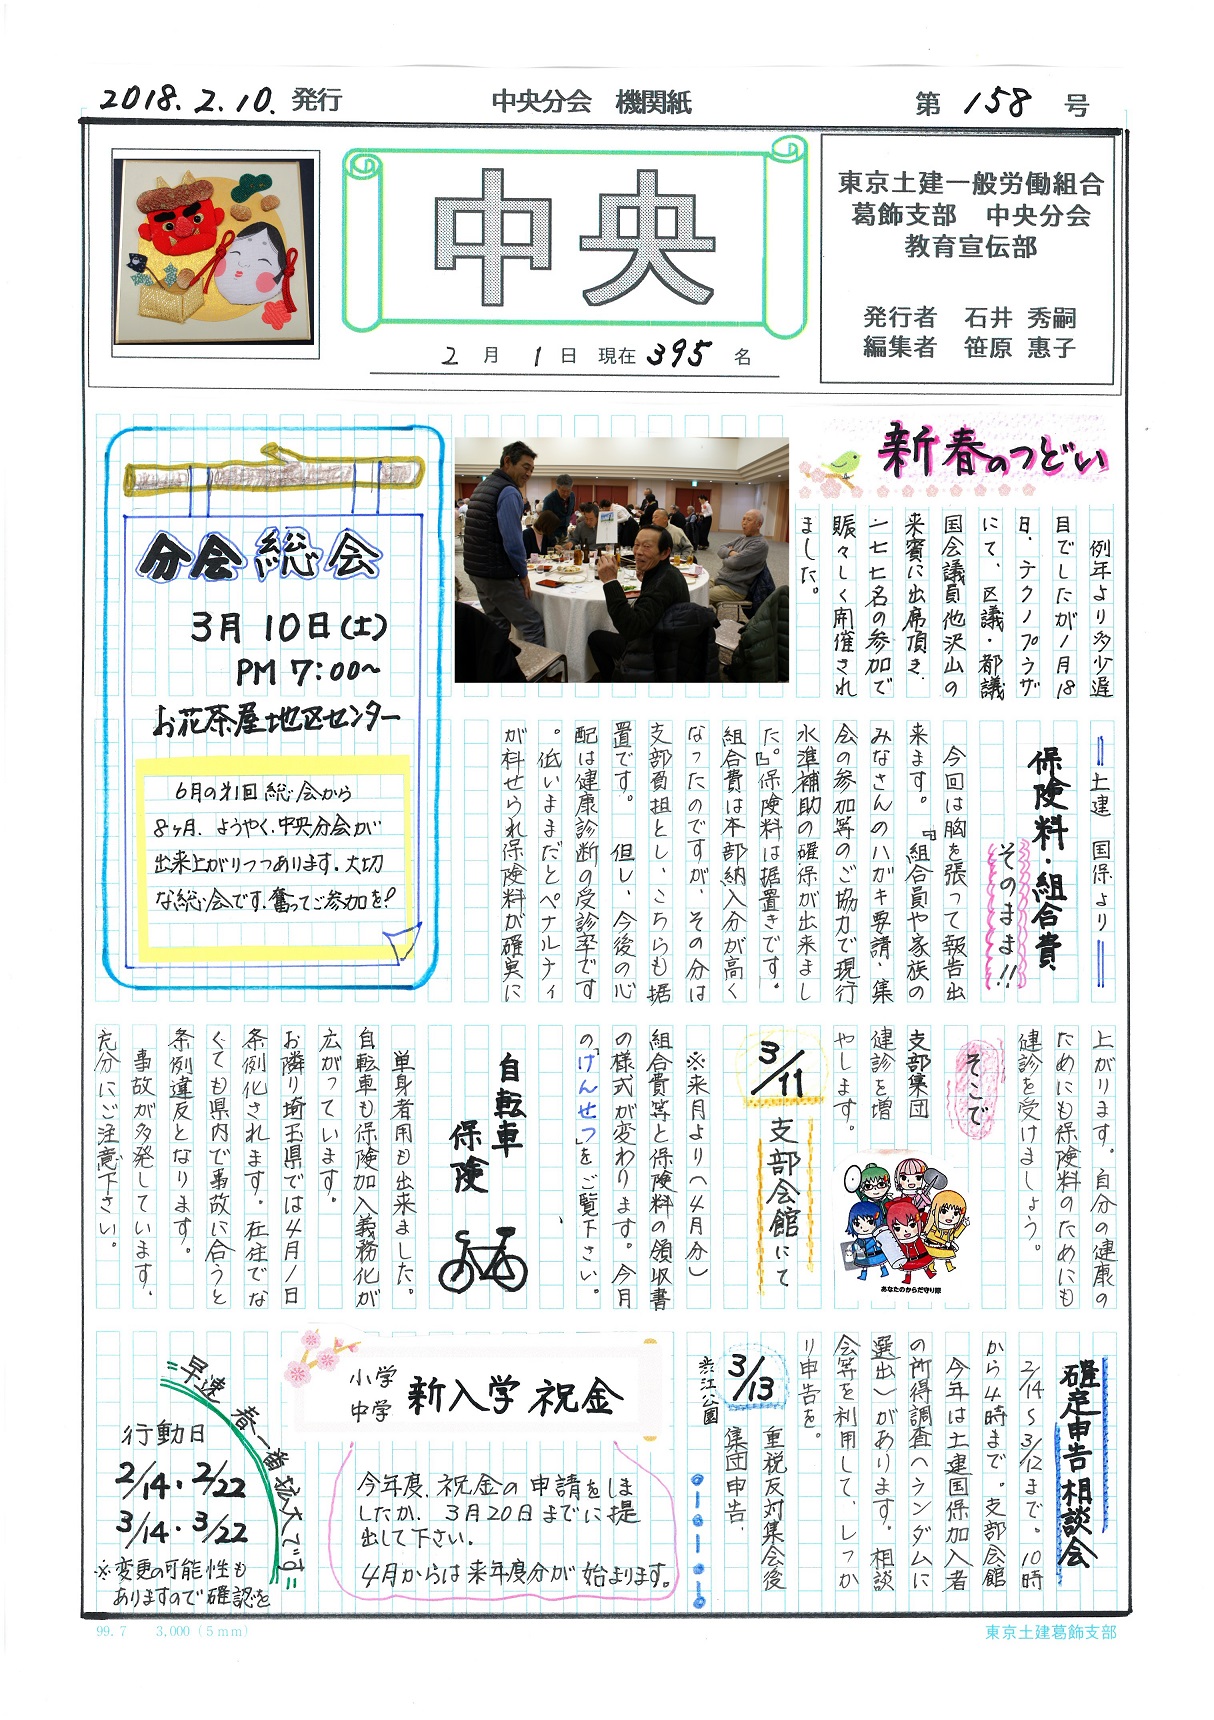 2018.2.10. 発行
中央分会 機関紙
第 158 号
中央
2月 1日 現在 395 名
東京土建一般労働組合
葛飾支部 中央分会
教育宣伝部
発行者 石井 秀嗣
編集者 笹原 惠子
新春のつどい
例年より多少遅
目でしたが1月18
日、テクノプラザ
にて、区議・都議
国会議員他沢山の
来賓に出席頂き、
一七七名の参加で
賑々しく開催され
ました。
分会総会
3月10日(土)
PM 7:00~
お花茶屋地区センター
6月の第1回総会から
8ヶ月、ようやく、中央分会が
出来上がりつつあります。大切
な総会です、奮ってご参加を!
土建 国保より
保険料・組合費
そのまま!!
今回は胸を張って報告出
来ます。『組合員や家族の
みなさんのハガキ要請・集
会の参加等のご協力で現行
水準補助の確保が出来まし
た。』保険料は据置きです。
組合費は本部納入分が高く
なったのですが、その分は
支部負担とし、こちらも据
置です。 但し、今後の心
配は健康診断の受診率です
。低いままだとペナルティ
が科せられ保険料が確実に
上がります。自分の健康の
ためにも保険料のためにも
健診を受けましょう。
そこで
支部集団
健診を増
やします。
あなたのからだ守り隊
3/11
支部会館にて
※来月より(4月分)
組合費等と保険料の領収書
の様式が変わります。今月
の「けんせつ」をご覧下さい。
自転車
保険
単身者用も出来ました。
自転車も保険加入義務化が
広がっています。
お隣り埼玉県では4月1日
条例化されます。在住でな
くても県内で事故に合うと
条例違反となります。
事故が多発しています、
充分にご注意下さい。
確定申告相談会
2/14〜3/12まで。10時
から4時まで。支部会館
今年は土建国保加入者
の所得調査(ランダムに
選出)があります。相談
会等を利用して、しっか
り申告を。
3/13
重税反対集会後
集団申告、
渋江公園
小学
中学
新入学 祝金
今年度、祝金の申請をしま
したか、3月20日までに提
出して下さい。
4月からは来年度分が始まります。
早速 春一番拡大です
行動日
2/14・2/22
3/14・3/22
※変更の可能性も
ありますので確認を
99.7 3,000(5mm)
東京土建葛飾支部